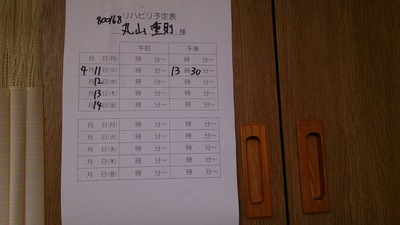 リハビリ予定表
800168
丸山 重則 様
午前 午後
月 日(月) 時 分～ 時 分～
4月11日(火) 時 分～ 13時30分～
12日(水) 時 分～ 時 分～
13日(木) 時 分～ 時 分～
14日(金) 時 分～ 時 分～
月 日(月) 時 分～ 時 分～
月 日(火) 時 分～ 時 分～
月 日(水) 時 分～ 時 分～
月 日(木) 時 分～ 時 分～
月 日(金) 時 分～ 時 分～